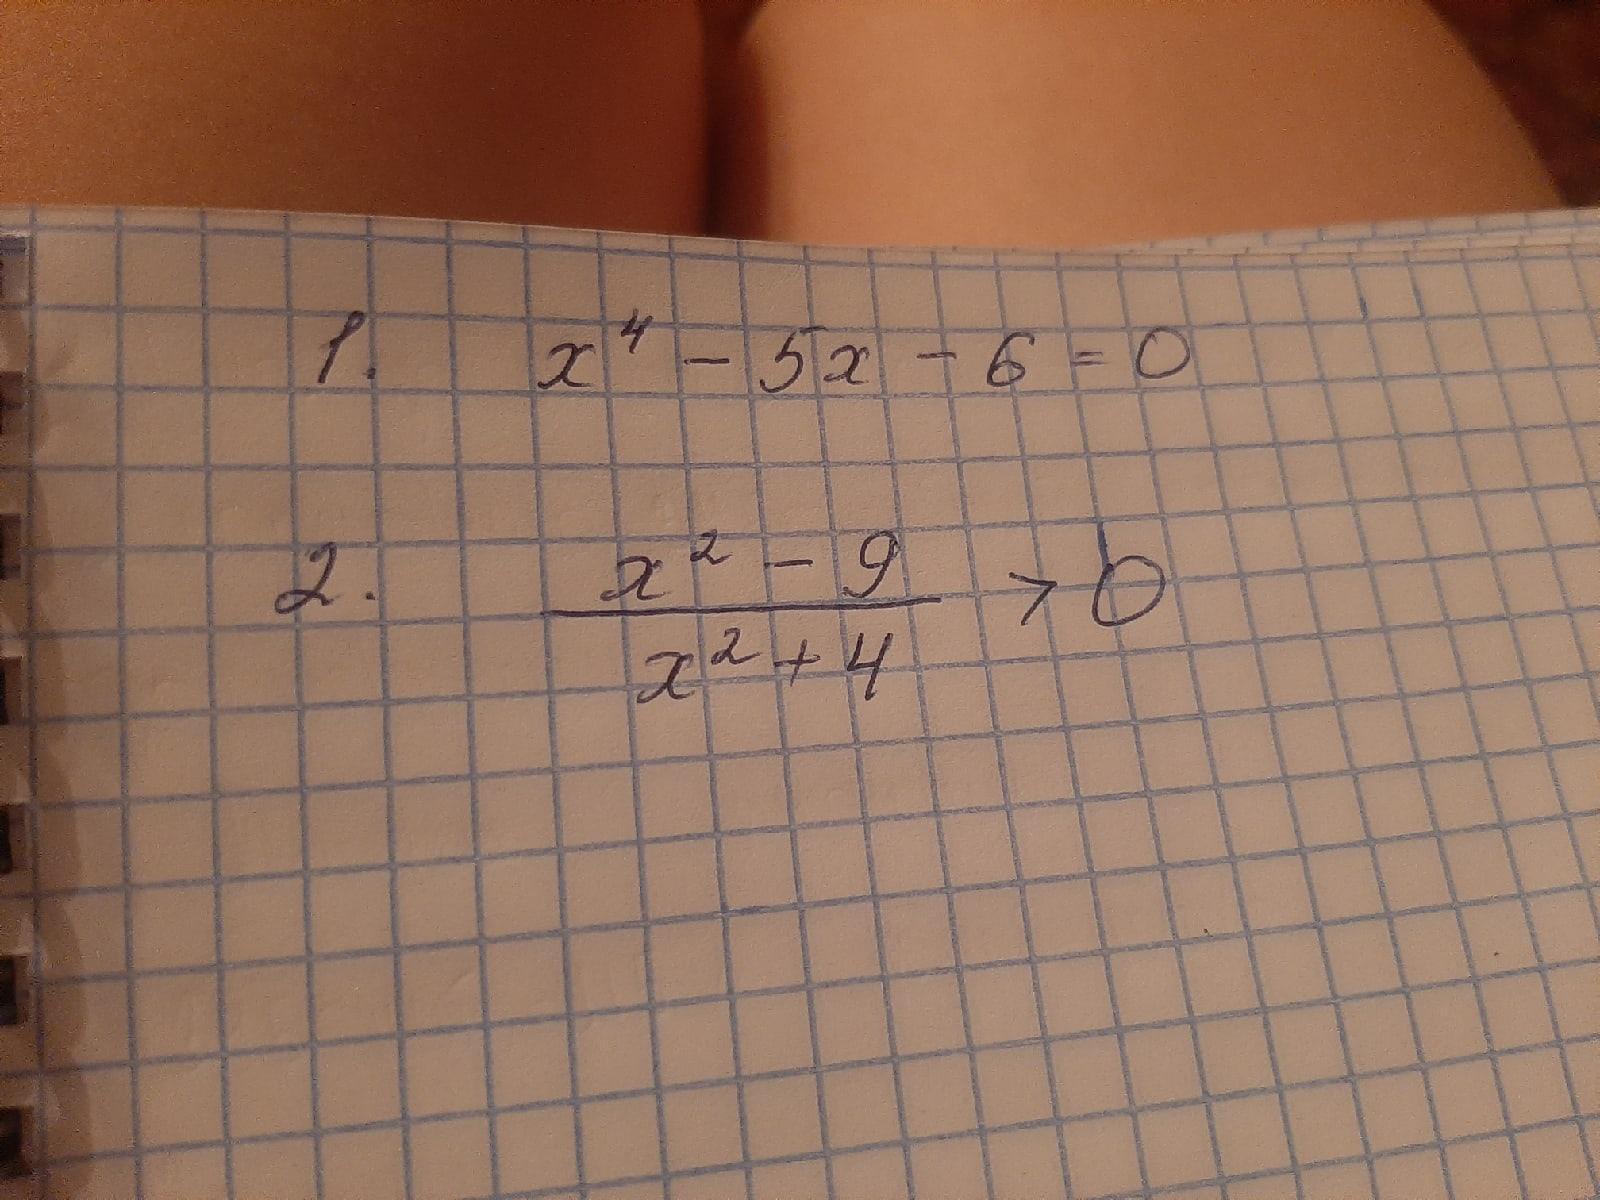 1. x⁴ - 5x - 6 = 0
2. x² - 9 / x² + 4 > 0